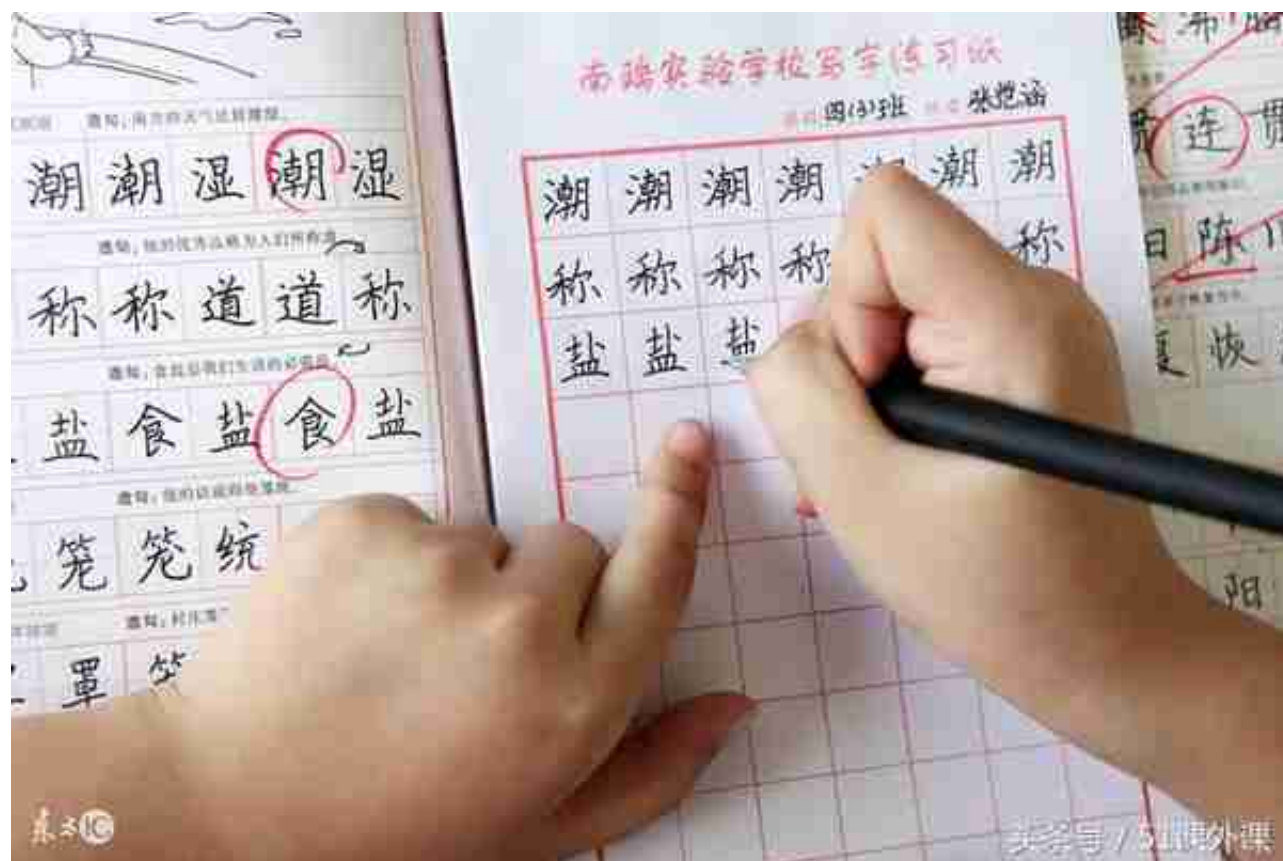 造句：南方的天气比较潮湿。
潮潮湿潮湿
造句：他的优秀品格为人们所称道
称称道道称
造句：食盐是我们生活的必需品
盐食盐食盐
造句：他的话说得
笼笼统
造句：村庄笼
罩
南瑞实验学校写字练习纸
四(3)班 张恺涵
潮潮潮潮潮潮
称称称称称
盐盐盐
沸
连贯
陈
恢
阳
东方IC
头条号 / 51课外课